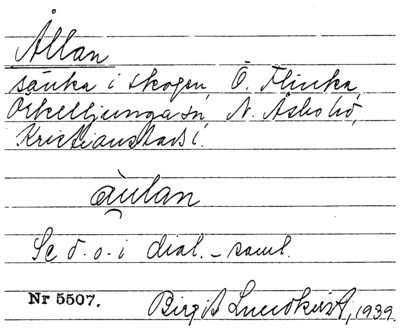 Ållan
sänka i skogen, Ö. Flinka,
Örkelljunga sn, N. Åsbo hd,
Kristianstads l.
äulan
Se ö.o.i dial.-saml.
Nr 5507. Birgit Lundkvist, 1939.